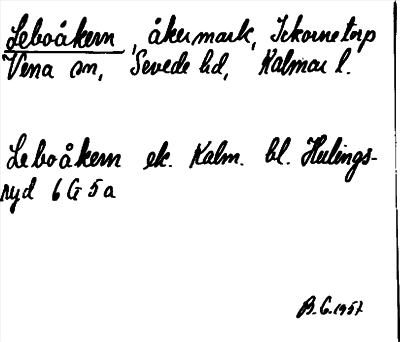 Leboåkern, åkermark, Ickornetorp
Vena sn, Sevede hd, Kalmar l.
Leboåkern ek. Kalm. bl. Hulings-
ryd 6 G 5 a
B.G. 1957